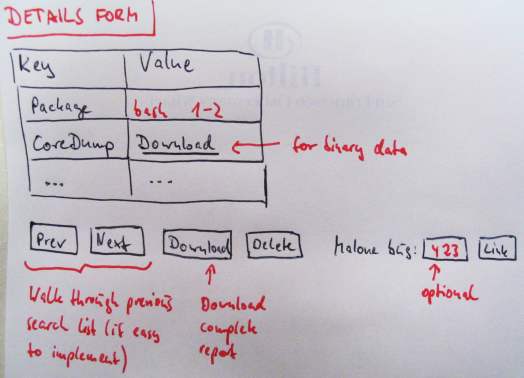 DETAILS FORM
Key Value
Package bash 1-2
CoreDump Download for binary data
... ...
Prev Next Download Delete Malone bug: 423 Link
optional
Walk through previous
search list (if easy
to implement)
Download
complete
report
Hilton